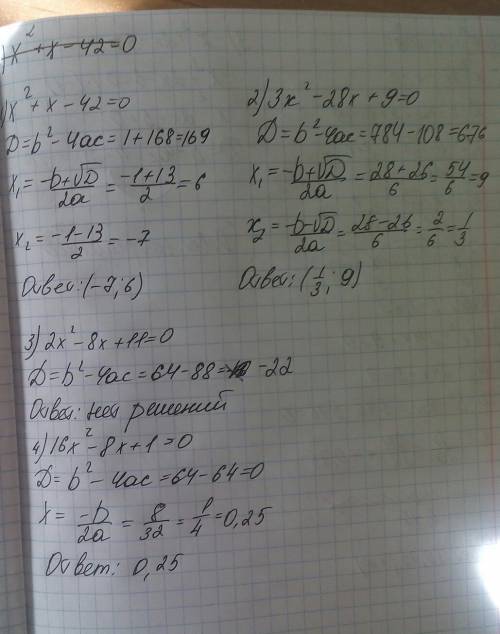 ) x² + x - 42 = 0
1) x² + x - 42 = 0
D = b² - 4ac = 1 + 168 = 169
x₁ = (-b + √D)/2a = (-1 + 13)/2 = 6
x₂ = (-1 - 13)/2 = -7
Ответ: (-7; 6)
2) 3x² - 28x + 9 = 0
D = b² - 4ac = 784 - 108 = 676
x₁ = (-b + √D)/2a = (28 + 26)/6 = 54/6 = 9
x₂ = (-b - √D)/2a = (28 - 26)/6 = 2/6 = 1/3
Ответ: (1/3; 9)
3) 2x² - 8x + 11 = 0
D = b² - 4ac = 64 - 88 = -22
Ответ: нет решений
4) 16x² - 8x + 1 = 0
D = b² - 4ac = 64 - 64 = 0
x = -b/2a = 8/32 = 1/4 = 0,25
Ответ: 0,25